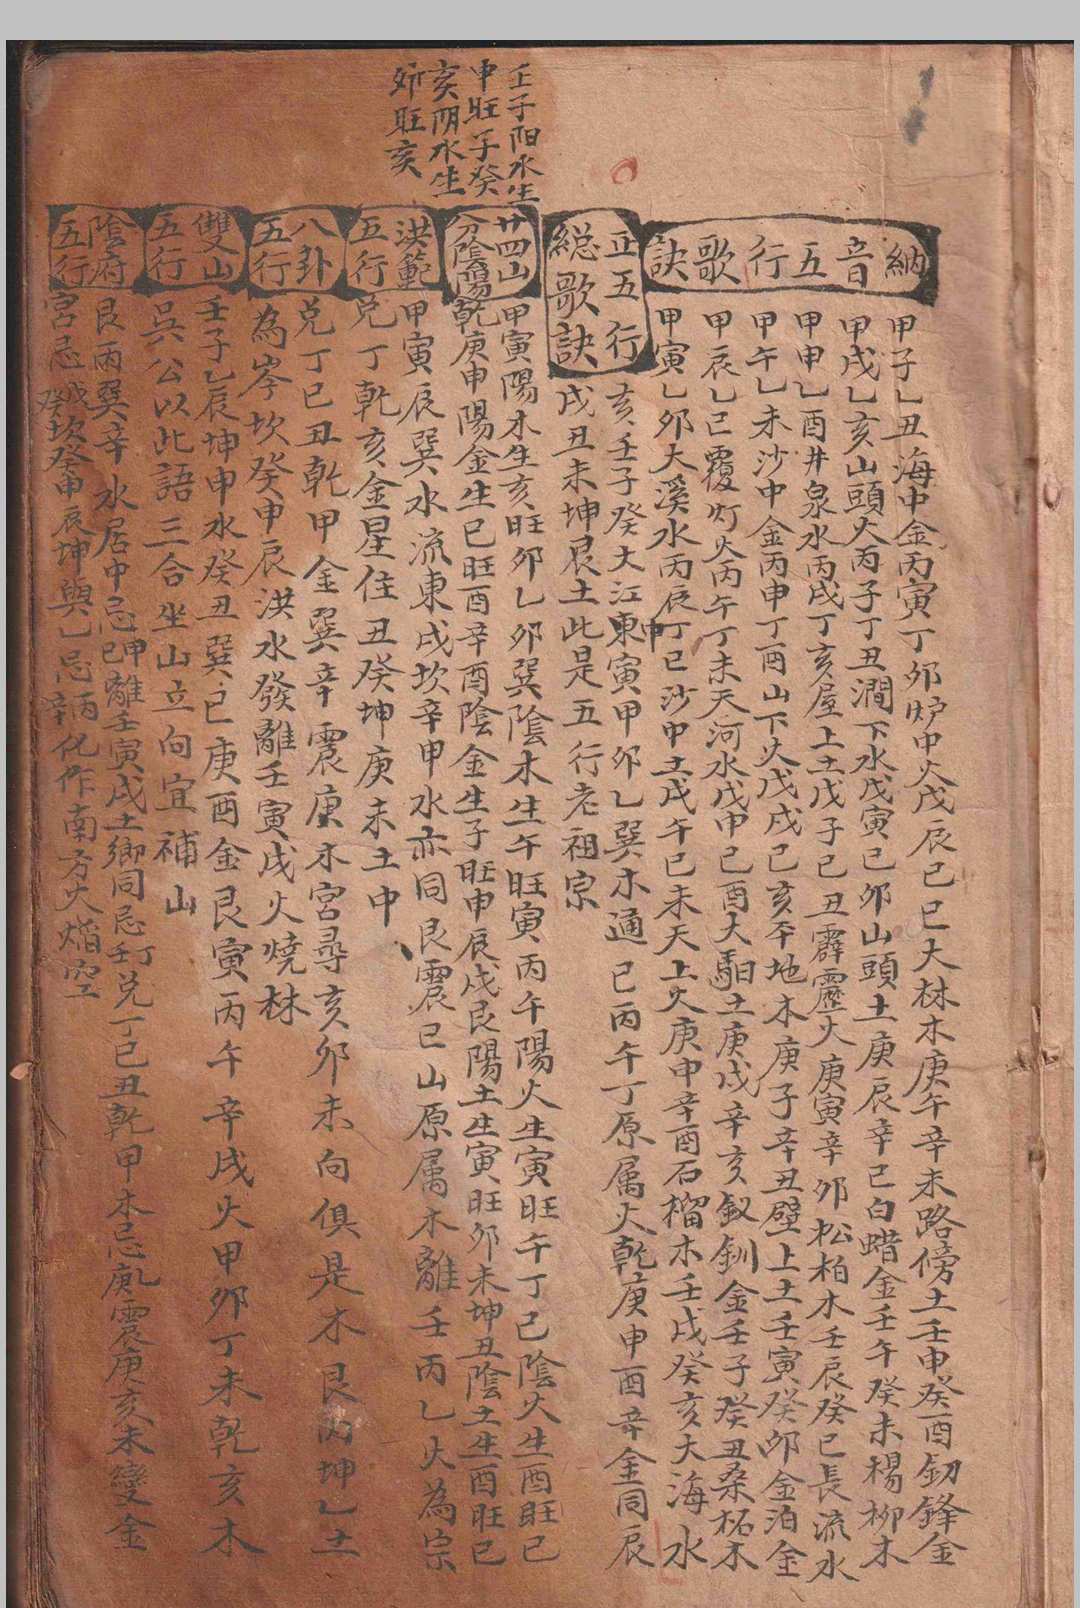 壬子阳水生
申旺子癸
亥阴水生
卯旺亥
納音五行歌訣
甲子乙丑海中金丙寅丁卯炉中火戊辰己巳大林木庚午辛未路傍土壬申癸酉釼鋒金
甲戌乙亥山頭火丙子丁丑澗下水戊寅己卯山頭土庚辰辛巳白蜡金壬午癸未楊柳木
甲申乙酉井泉水丙戌丁亥屋上土戊子己丑霹靂火庚寅辛卯松柏木壬辰癸巳長流水
甲午乙未沙中金丙申丁酉山下火戊戌己亥平地木庚子辛丑壁上土壬寅癸卯金泊金
甲辰乙巳覆灯火丙午丁未天河水戊申己酉大馹土庚戌辛亥釵釧金壬子癸丑桑柘木
甲寅乙卯大溪水丙辰丁巳沙中土戊午己未天上火庚申辛酉石榴木壬戌癸亥大海水
正五行總歌訣
亥壬子癸大江東寅甲卯乙巽木通巳丙午丁原属火乾庚申酉辛金同辰
戌丑未坤艮土此是五行老祖宗
廿四山分陰陽
甲寅陽木生亥旺卯乙卯巽陰木生午旺寅丙午陽火生寅旺午丁巳陰火生酉旺巳
乾庚申陽金生巳旺酉辛酉陰金生子旺申辰戌艮陽土生寅旺卯未坤丑陰土生酉旺巳
洪範五行
甲寅辰巽水流東戌坎辛申水亦同艮震巳山原属木離壬丙乙火為宗
兑丁乾亥金星住丑癸坤庚未土中
八卦五行
兑丁巳丑乾甲金巽辛震庚木宮尋亥卯未向俱是木艮丙坤乙土
為岑坎癸申辰洪水發離壬寅戌火燒林
雙山五行
壬子乙辰坤申水癸丑巽巳庚酉金艮寅丙午辛戌火甲卯丁未乾亥木
吳公以此語三合坐山立向宜補山
陰府五行
艮丙巽辛水居中忌甲己離壬寅戌土鄉同忌壬丁兑丁巳丑乾甲木忌庚乙震庚亥未變金
宮忌戊癸坎癸申辰坤與乙忌丙辛化作南方火焰空